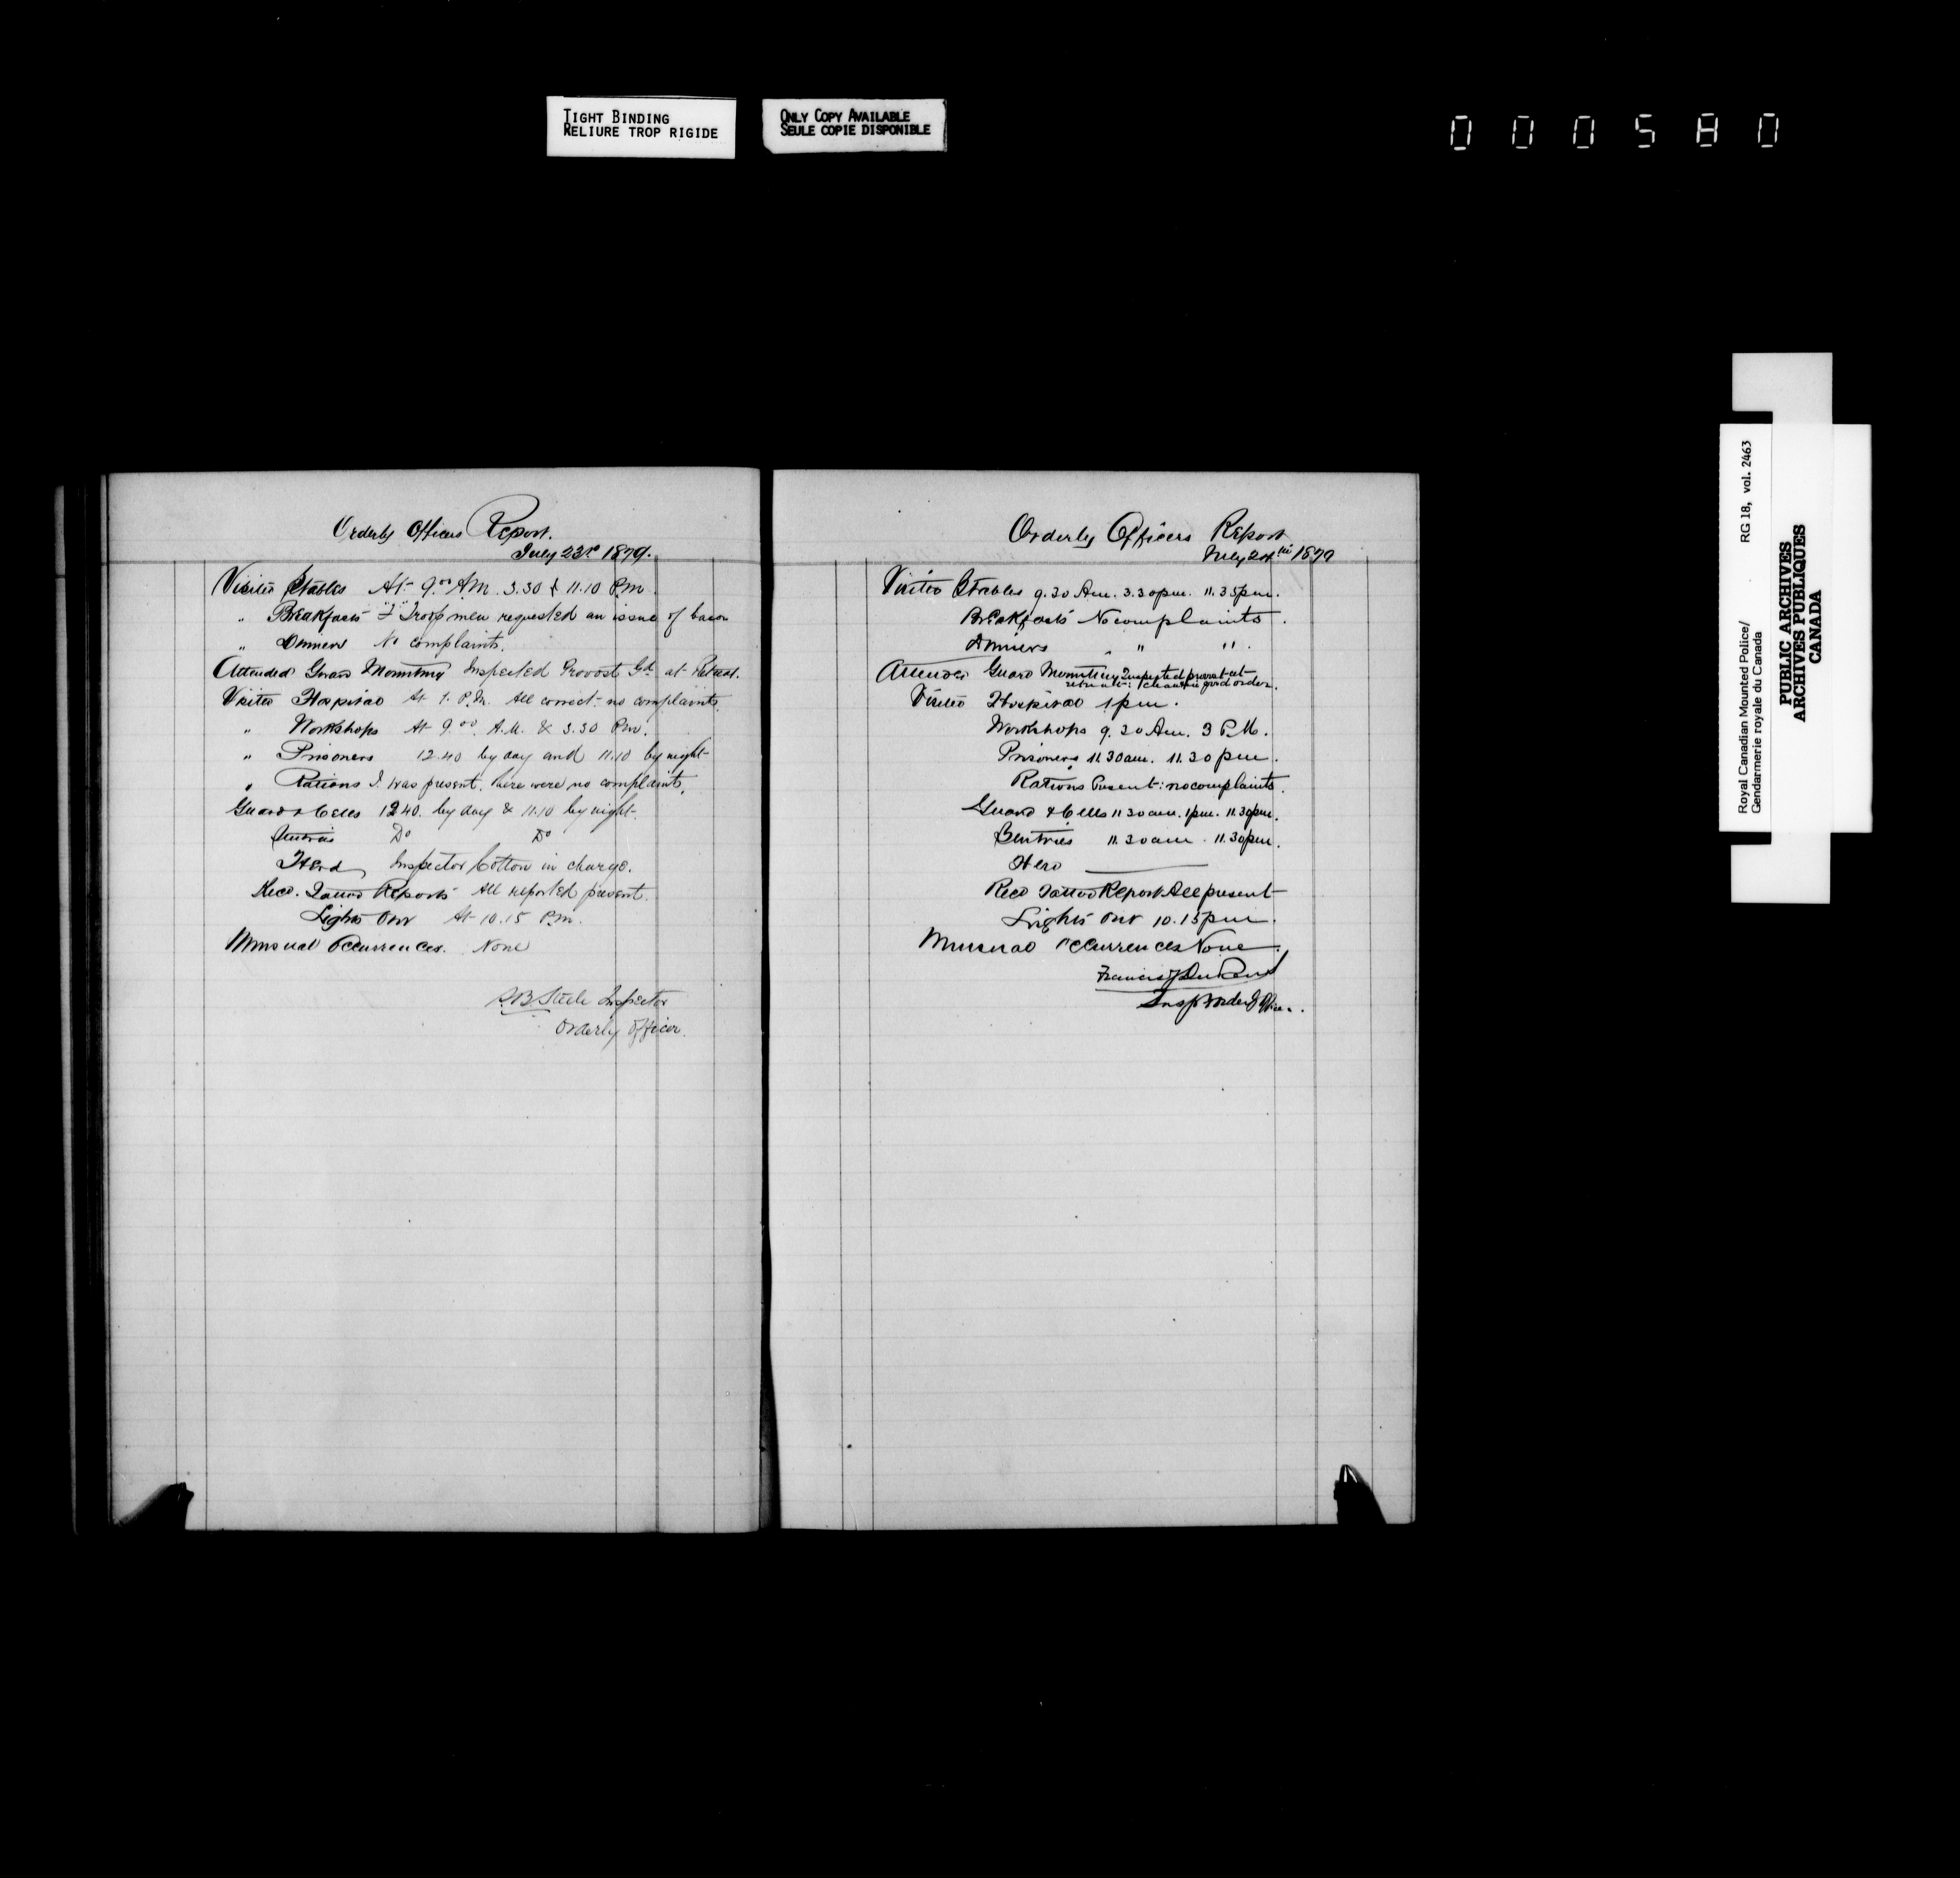 TIGHT BINDING
RELIURE TROP RIGIDE
ONLY COPY AVAILABLE
SEULE COPIE DISPONIBLE
000580
Orderly Officers Report.
July 23rd 1879.
Visited Stables At 9.00 A.M. 3.30 & 11.10 P.M.
" Breakfasts "F" Troop men requested an issue of bacon
" Dinners No complaints.
Attended Guard Mounting Inspected Provost Gd. at Retreat.
Visited Hospital At 1. P.M. All correct - no complaints.
" Workshops At 9.00 A.M. & 3.30 P.M.
" Prisoners 12.40 by day and 11.10 by night
" Rations I was present, there were no complaints.
Guard & Cells 12 40. by day & 11.10 by night.
Sentries Do Do
Herd Inspector Cotton in charge.
Recd. Tattoo Reports All reported present.
Lights Out At 10.15 P.M.
Unusual Occurrences. None
S.B. Steele Inspector
Orderly Officer.
Orderly Officers Report
July 24th 1879
Visited Stables 9.30 Am. 3.30pm. 11.35pm.
Breakfasts No complaints.
Dinners " " ".
Attended Guard Mounting Inspected provost at
retreat: clean in good order.
Visited Hospital 1pm.
Workshops 9.30 Am. 3 P.M.
Prisoners 11.30am. 11.30pm.
Rations Present: no complaints.
Guard & Cells 11 30am. 1pm. 11.30pm.
Sentries 11.30am. 11.30pm.
Herd
Recd Tattoo Report All present
Lights Out 10.15pm.
Unusual Occurrences None.
Francis J Dickens
Insp Orderly Officer.
Royal Canadian Mounted Police/
Gendarmerie royale du Canada
RG 18, vol. 2463
PUBLIC ARCHIVES
ARCHIVES PUBLIQUES
CANADA